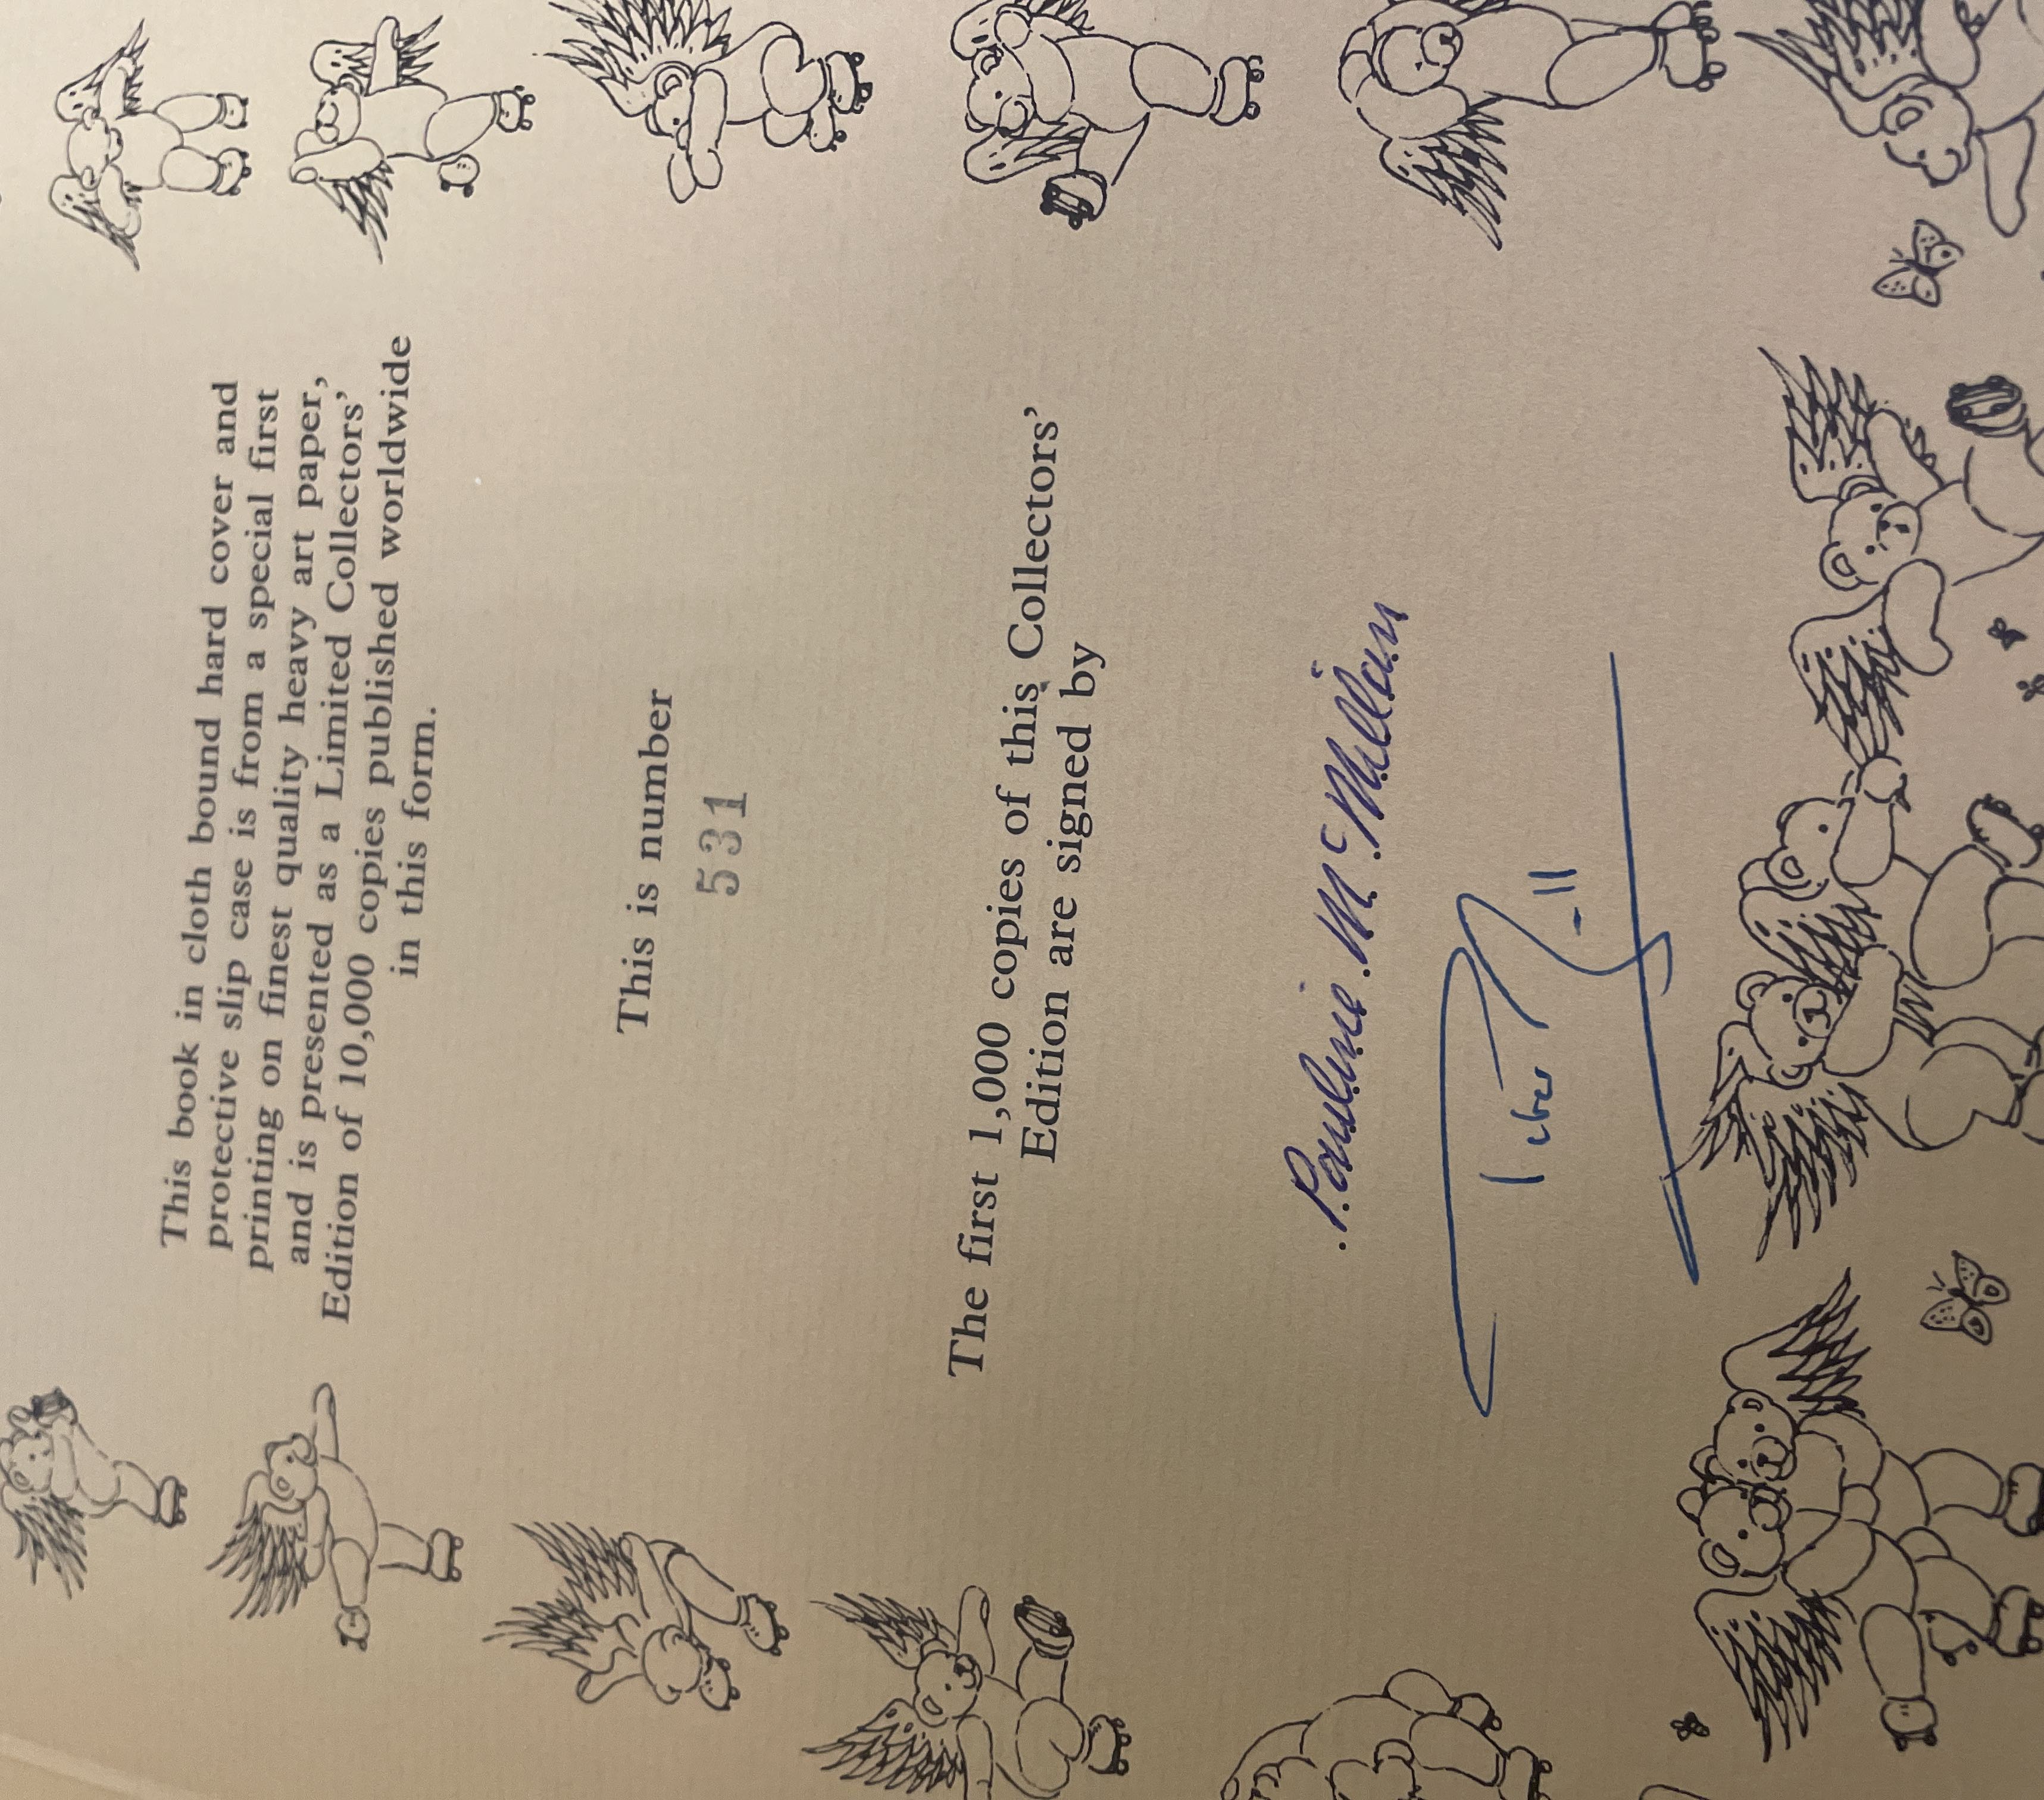 This book in cloth bound hard cover and
protective slip case is from a special first
printing on finest quality heavy art paper,
and is presented as a Limited Collectors'
Edition of 10,000 copies published worldwide
in this form.
This is number
531
The first 1,000 copies of this Collectors'
Edition are signed by
Pauline McMillan